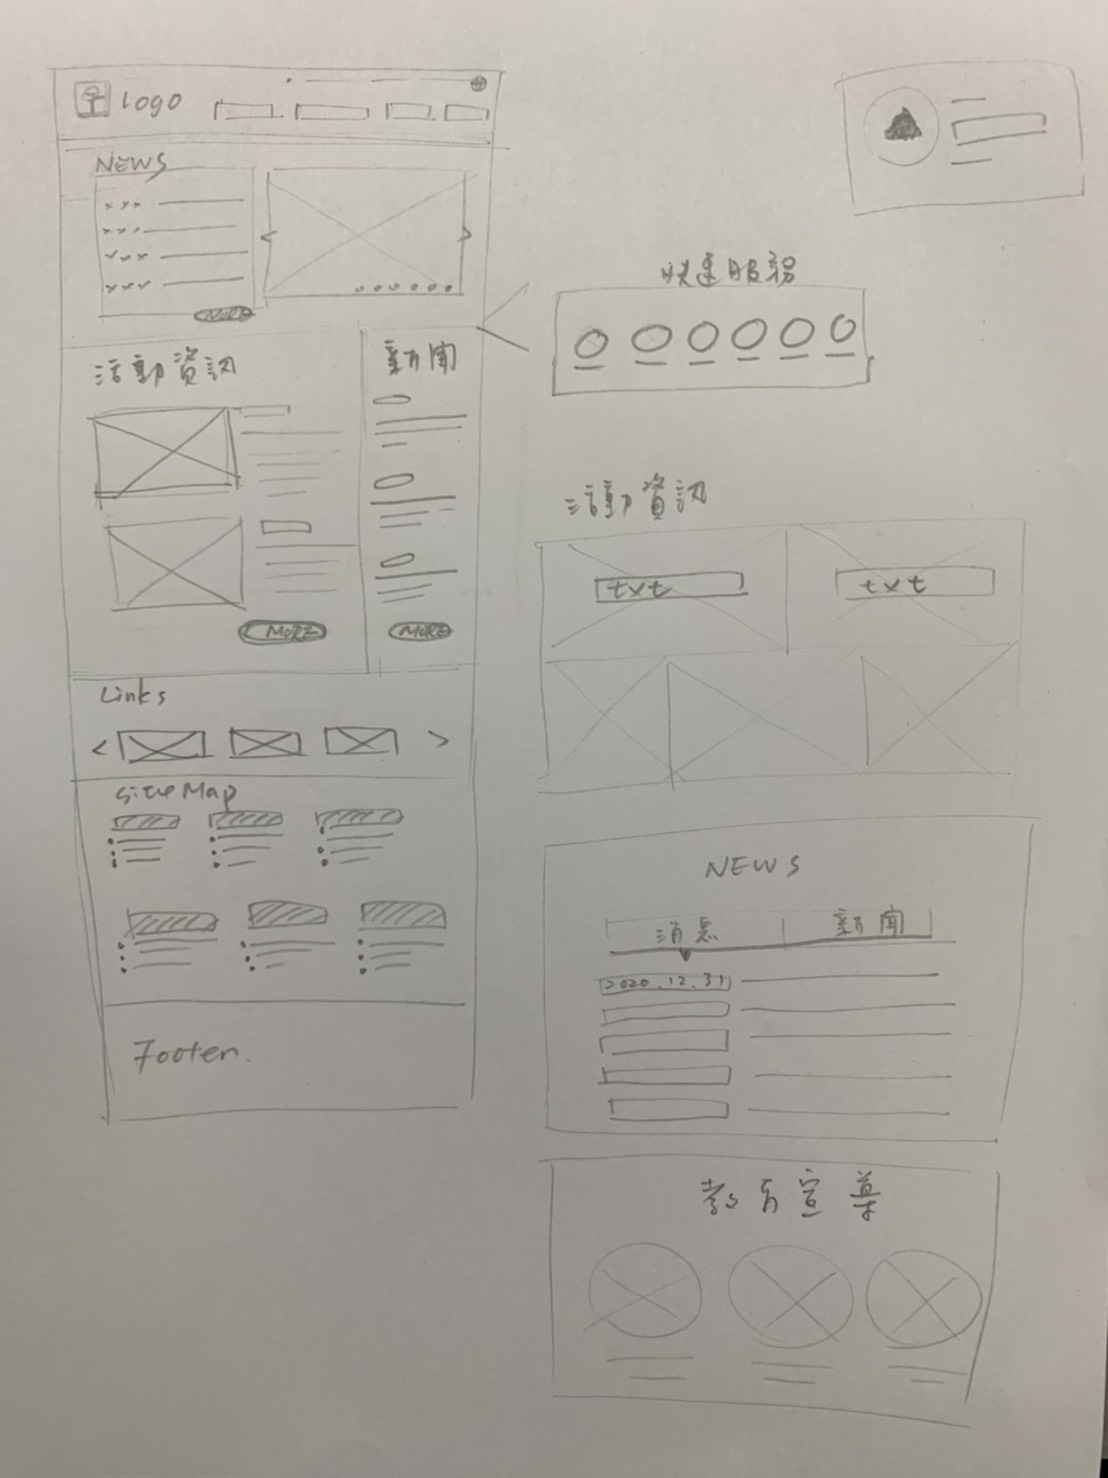 Logo
NEWS
xxx
xxx
xxx
xxx
MORE
活動資訊
新聞
MORE
MORE
Links
siteMap
Footer.
快速服務
活動資訊
txt
txt
NEWS
消息
新聞
2020.12.31
宣導